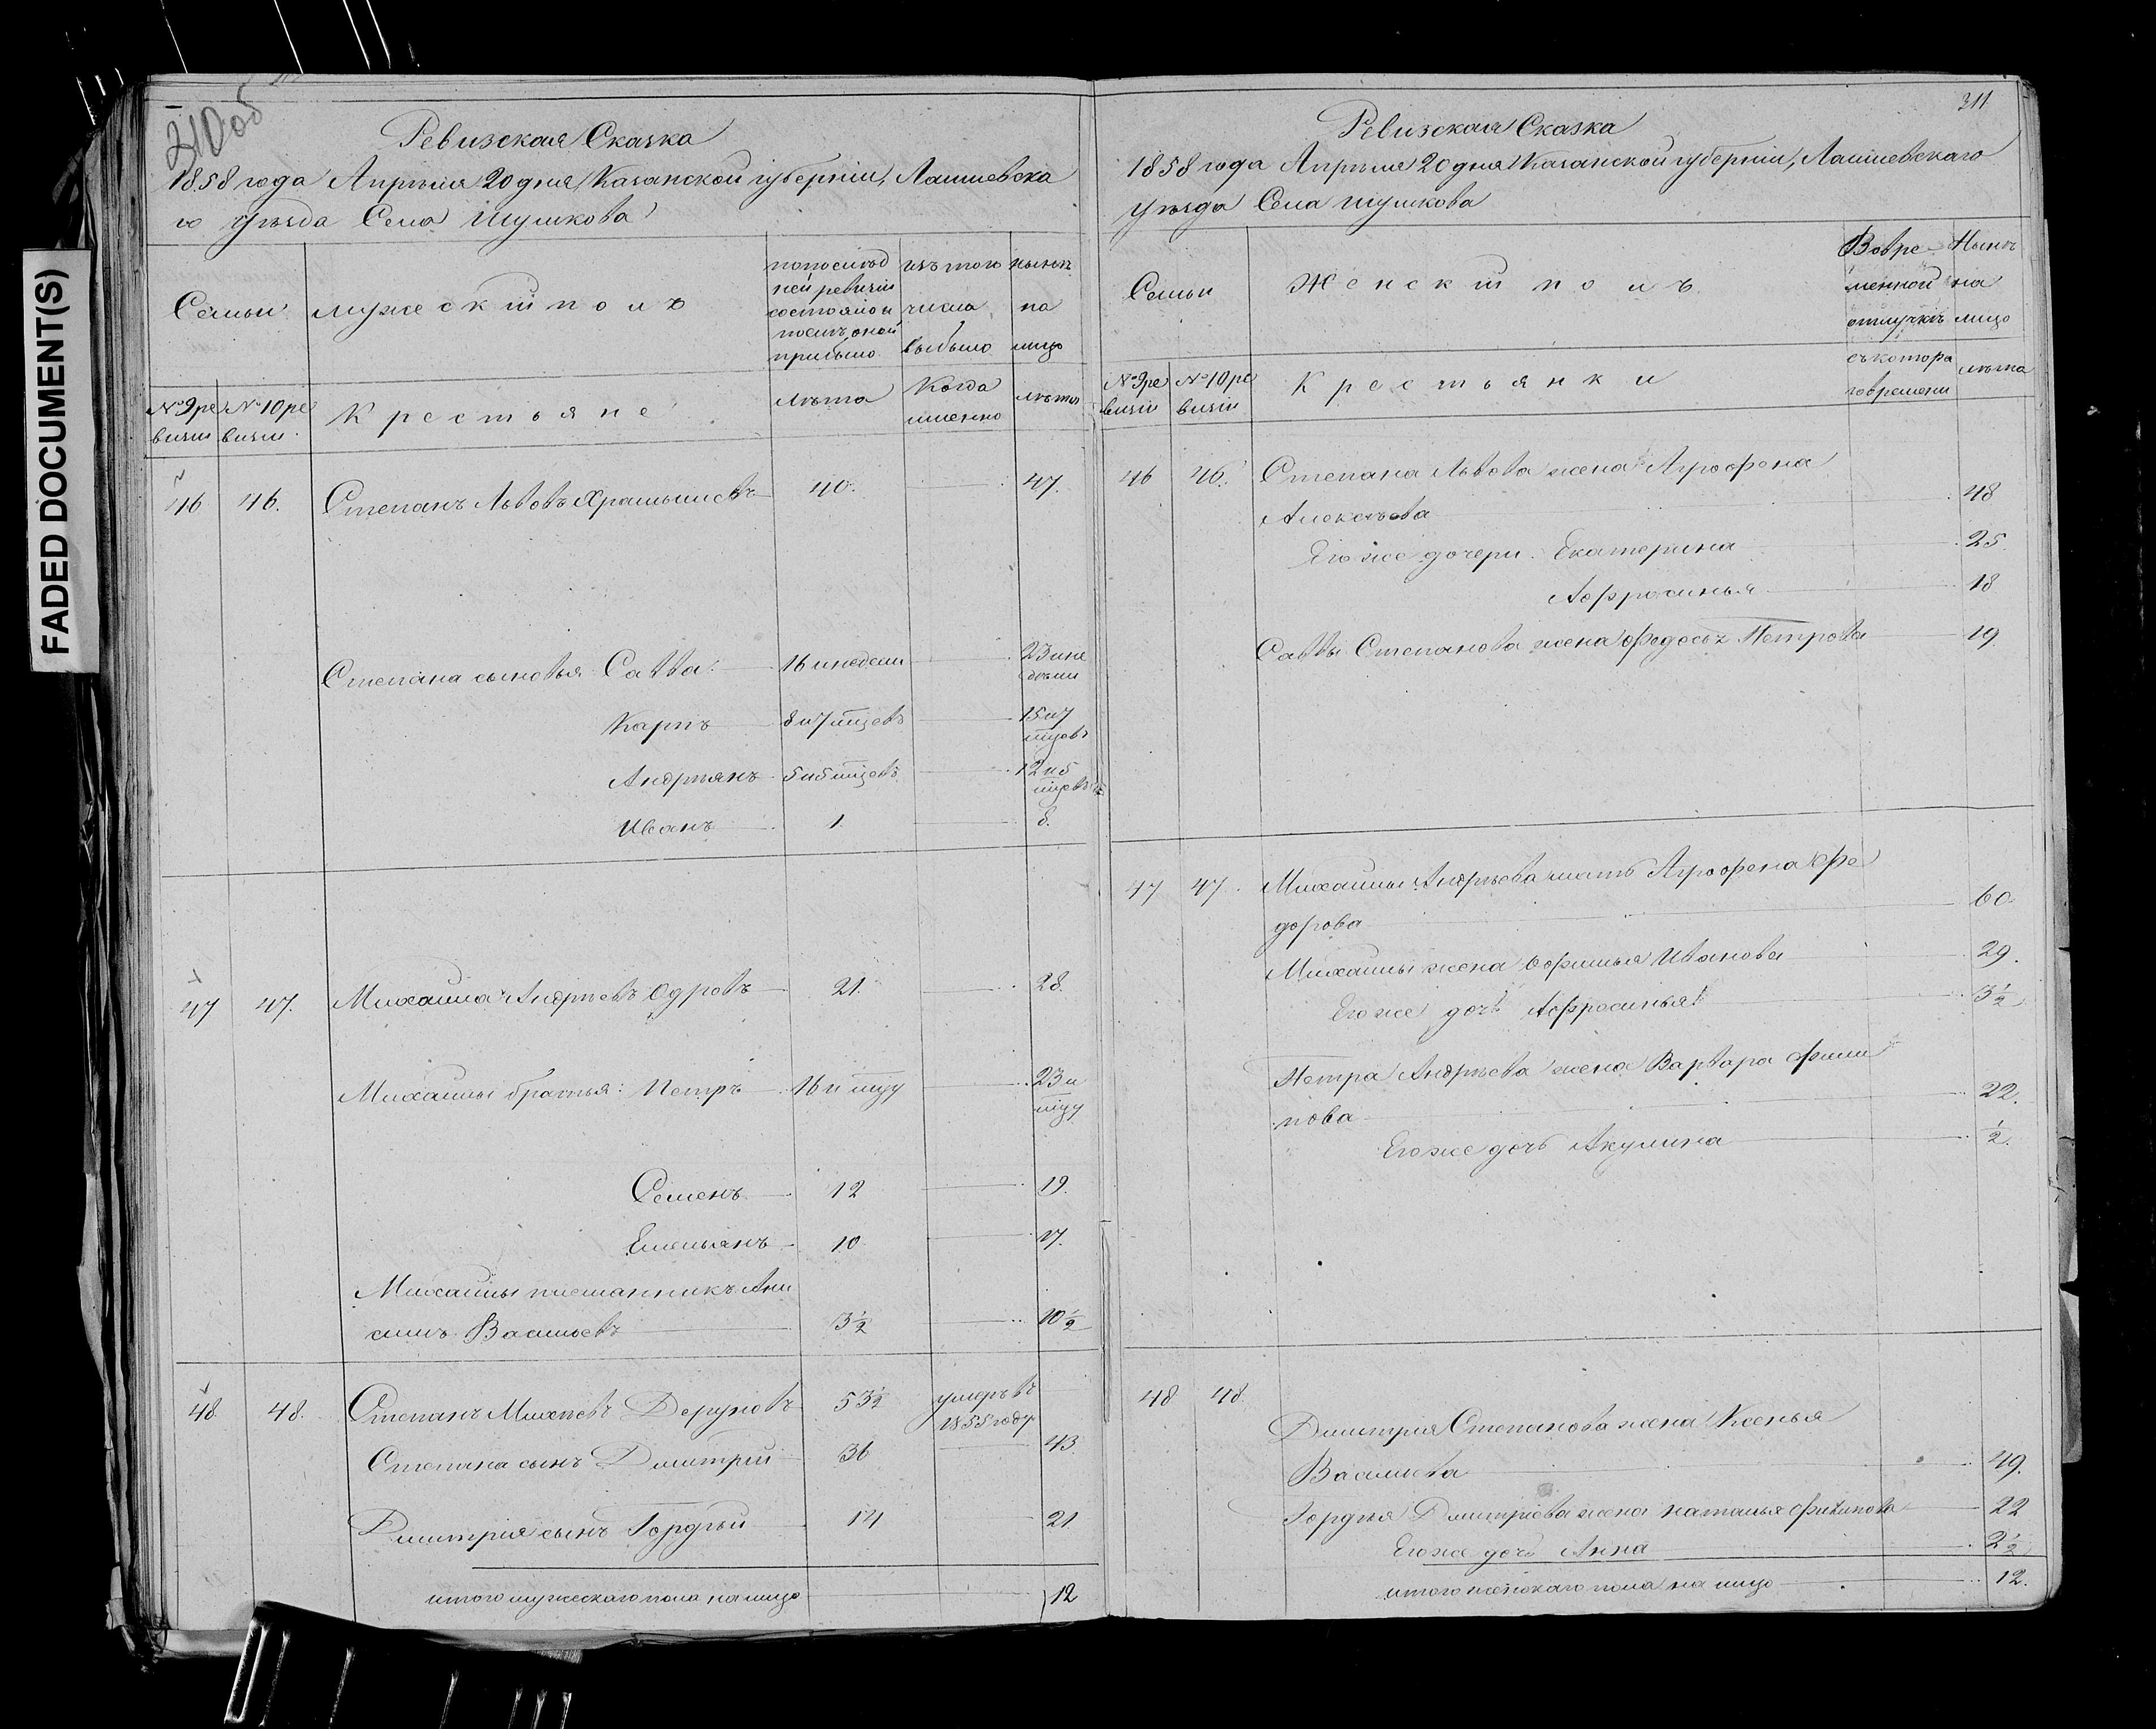 FADED DOCUMENT(S)
310об
Ревизская Сказка
1858 года Апрѣля 20 дня Казанской губерніи, Лаишевска
го уѣзда Села Шумкова
Семьи
мужескій полъ
по послѣд
ней ревизіи
состояло и
послѣ оной
прибыло
изъ того
числа
выбыло
нынѣ
на
лицо
№ 9 ре
визіи
№ 10 ре
визіи
Крестьяне
лѣта
Когда
именно
лѣта
46 46. Степанъ Львовъ 40. 47.
Степана сыновья Савва: 16 и недели 23 и не
дели
Карпъ 8 и 7 мцевъ 15 и 7
мцевъ
Андріянъ 5 и 5 мцевъ 12 и 5
мцевъ
Иванъ 1. 8.
47 47. Михаила Андрѣевъ Одровъ 21. 28.
Михаилы братья: Петръ 16 и мцу 23 и
мцу
Семенъ 12 19.
Емельянъ 10 17.
Михаилы племянникъ Ани
симъ Васильевъ 3½ 10½
48 48. Степанъ Михѣевъ 53½ умеръ въ
1855 году
Степана сынъ Дмитрій 36 43.
Дмитрія сынъ Гордѣй 14 21
итого мужескаго пола на лицо 12
311
Ревизская Сказка
1858 года Апрѣля 20 дня Казанской губерніи, Лаишевскаго
уѣзда Села Шумкова
Семьи
Женскій полъ
Вовре
менной
отлучкѣ
Нынѣ
на
лицо
№ 9 ре
визіи
№ 10 ре
визіи
Крестьянки
съ котора
го времени
лѣта
46 46. Степана Львова жена Агрофена
Алексѣева 48
Его же дочери. Екатерина 25.
Аффросинья 18
Саввы Степанова жена Федосья Петрова 19.
47 47. Михаилы Андрѣева мать Агрофена Фе
дорова 60.
Михаилы жена Офимья Иванова 29.
Его же дочь Аффросинья 3½
Петра Андрѣева жена Варвара Фили
пова 22.
Его же дочь Акулина ½.
48 48. Дмитрія Степанова жена Ксенья
Васильева 49.
Гордѣя Дмитріева жена Наталья Филипова 22
Его же дочь Анна 2½
итого женскаго пола на лицо 12.